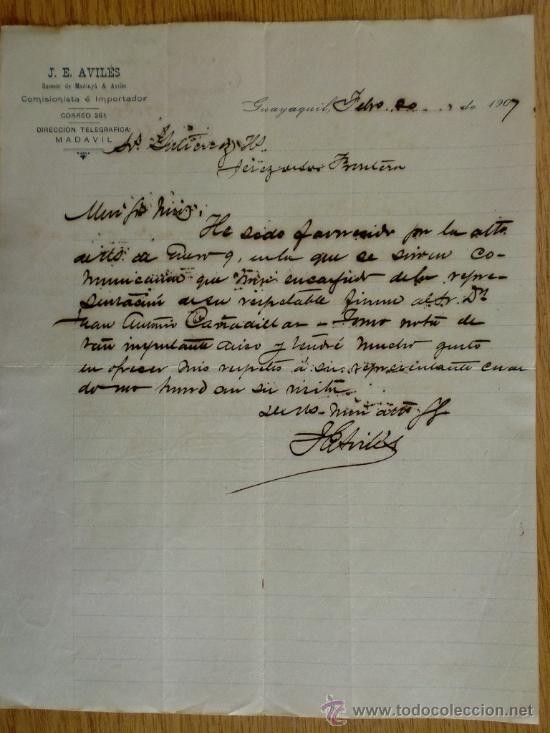 J. E. AVILÉS
Comisionista é Importador
CORREO 261
DIRECCION TELEGRAFICA:
MADAVIL
Guayaquil, Febro. 20 de 1907
Gutierrez Hs.
Jerez de la Frontera
He sido favorecido por la atta
de Us. de Enero 9, en la que se sirven co-
municarme que han encargado de la repre-
sentación de su respetable firma al Sr. Dn
Juan Antonio Cañadillas - Tomo nota de
tan importante aviso y tendré mucho gusto
en ofrecer mis respetos á su representante cuan
do me honre con su visita.
de Us. muy atto. SS
J E Avilés
www.todocoleccion.net